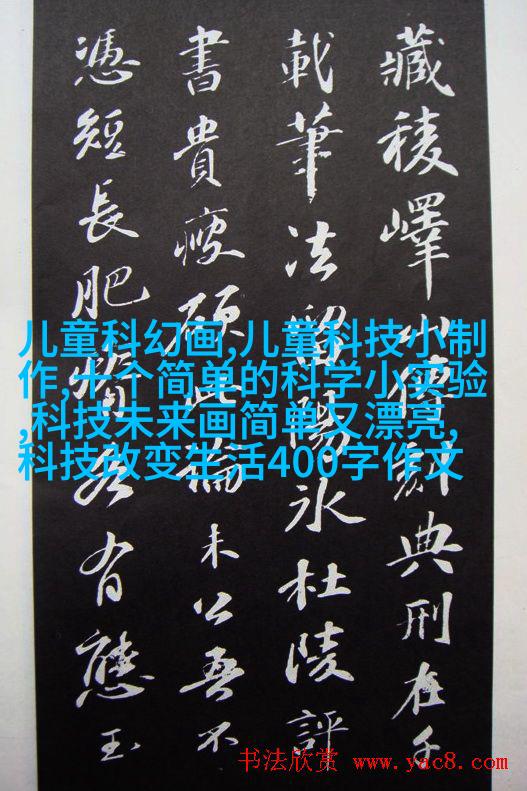 藏稜嶧山傳刻典刑在千
載筆法留陽氷杜陵評
書貴瘦硬此論未公吾不
憑短長肥瘠各有態玉
儿童科幻画,儿童科技小制
作,十个简单的科学小实验
,科技未来画简单又漂亮,
科技改变生活400字作文
书法欣赏 www.yac8.com